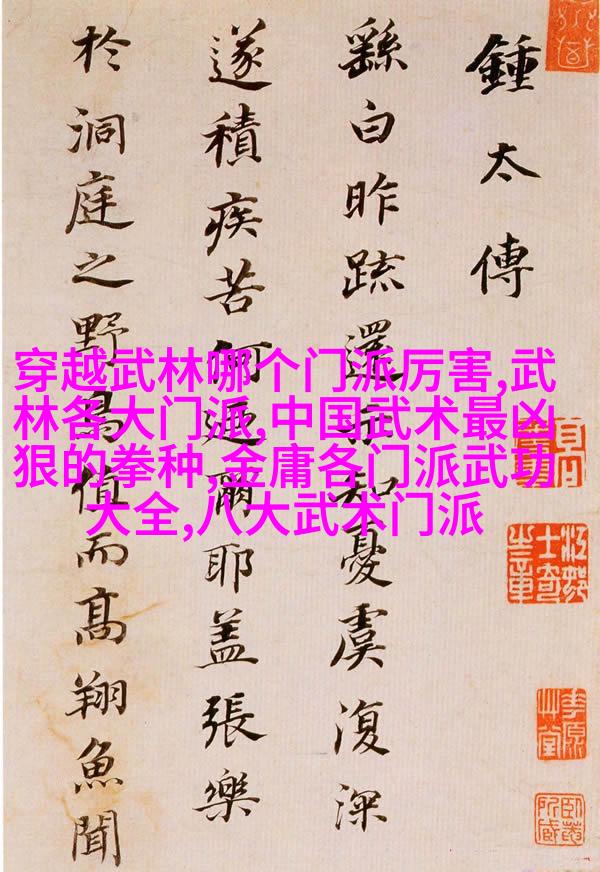 鍾太傅
繇白昨疏還示知憂虞復深
遂積疾苦何廼爾耶蓋張樂
於洞庭之野鳥值而高翔魚聞
穿越武林哪个门派厉害,武
林各大门派,中国武术最凶
狠的拳种,金庸各门派武功
大全,八大武术门派